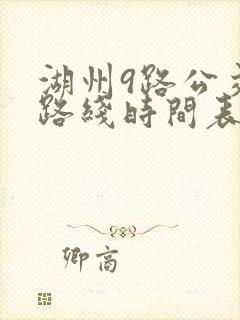 湖州9路公交
路线時間表
卿高